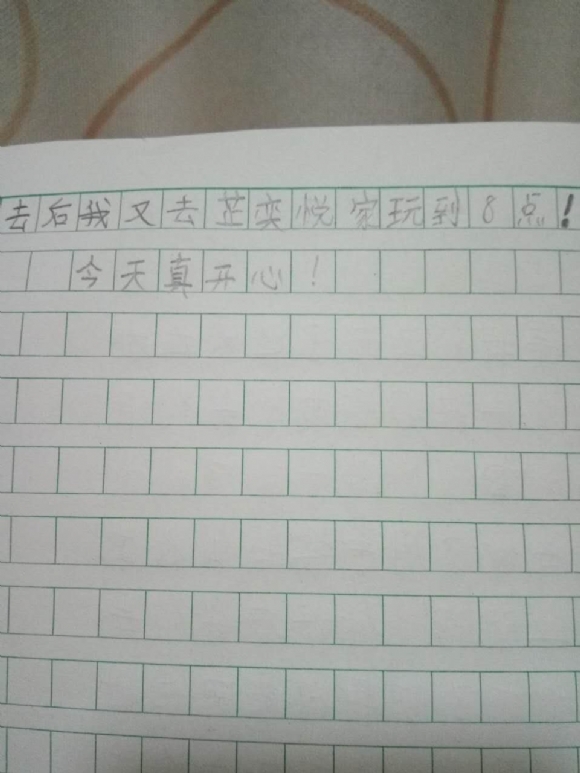 去后我又去芷奕悦家玩到8点!
今天真开心!